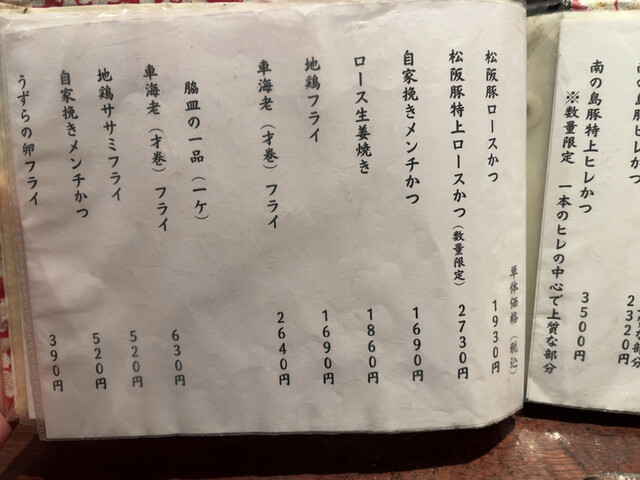 2320円
南の島豚特上ヒレかつ 3500円
※数量限定 一本のヒレの中心で上質な部分
単体価格（税込）
松阪豚ロースかつ 1930円
松阪豚特上ロースかつ（数量限定） 2730円
自家挽きメンチかつ 1690円
ロース生姜焼き 1860円
地鶏フライ 1690円
車海老（才巻）フライ 2640円
脇皿の一品（一ケ）
車海老（才巻）フライ 630円
地鶏ササミフライ 520円
自家挽きメンチかつ 520円
うずらの卵フライ 390円